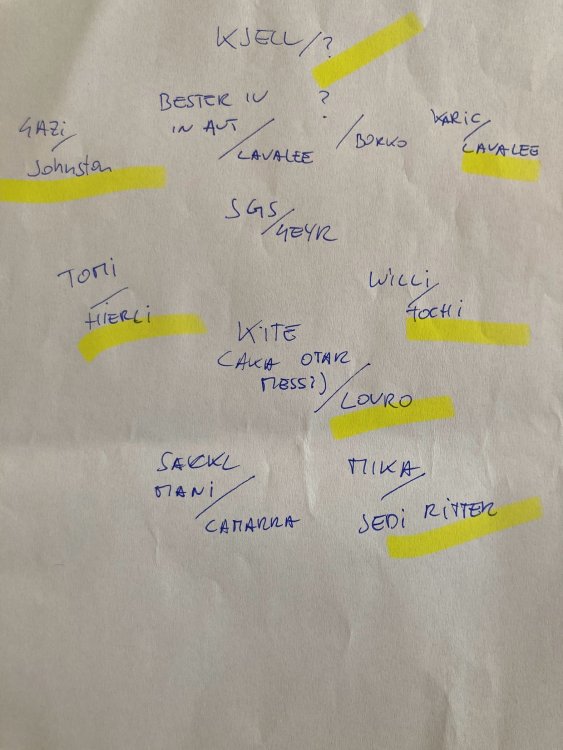 KJELL/?
BESTER IV ?
IN AUT / LAVALEE
/ BORKO
KARIC/
LAVALEE
GAZI/
Johnston
SGS/
GEYR
TOMI/
HIERLI
WILLI/
TOCHI
KITE
(AKA OTAR
MESSI)/
LOURO
SAKKL
MANI/
CAMARRA
MIKA/
SEDI RITTER